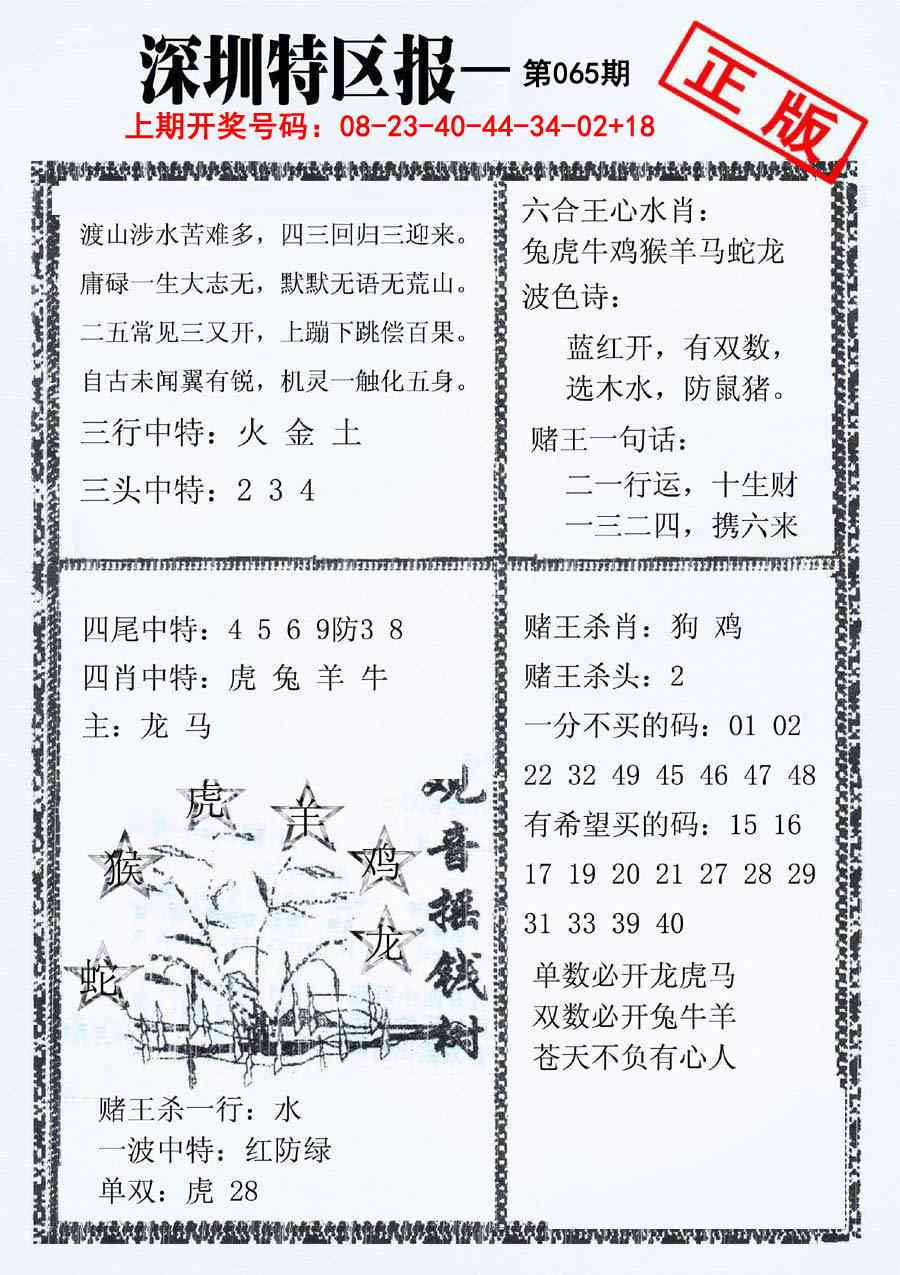 深圳特区报—第065期
正版
上期开奖号码：08-23-40-44-34-02+18
渡山涉水苦难多，四三回归三迎来。
庸碌一生大志无，默默无语无荒山。
二五常见三又开，上蹦下跳偿百果。
自古未闻翼有锐，机灵一触化五身。
三行中特：火 金 土
三头中特：2 3 4
六合王心水肖：
兔虎牛鸡猴羊马蛇龙
波色诗：
蓝红开，有双数，
选木水，防鼠猪。
赌王一句话：
二一行运，十生财
一三二四，携六来
四尾中特：4 5 6 9防3 8
四肖中特：虎 兔 羊 牛
主：龙 马
虎
羊
猴
鸡
龙
蛇
观音摇钱树
赌王杀一行：水
一波中特：红防绿
单双：虎 28
赌王杀肖：狗 鸡
赌王杀头：2
一分不买的码：01 02
22 32 49 45 46 47 48
有希望买的码：15 16
17 19 20 21 27 28 29
31 33 39 40
单数必开龙虎马
双数必开兔牛羊
苍天不负有心人